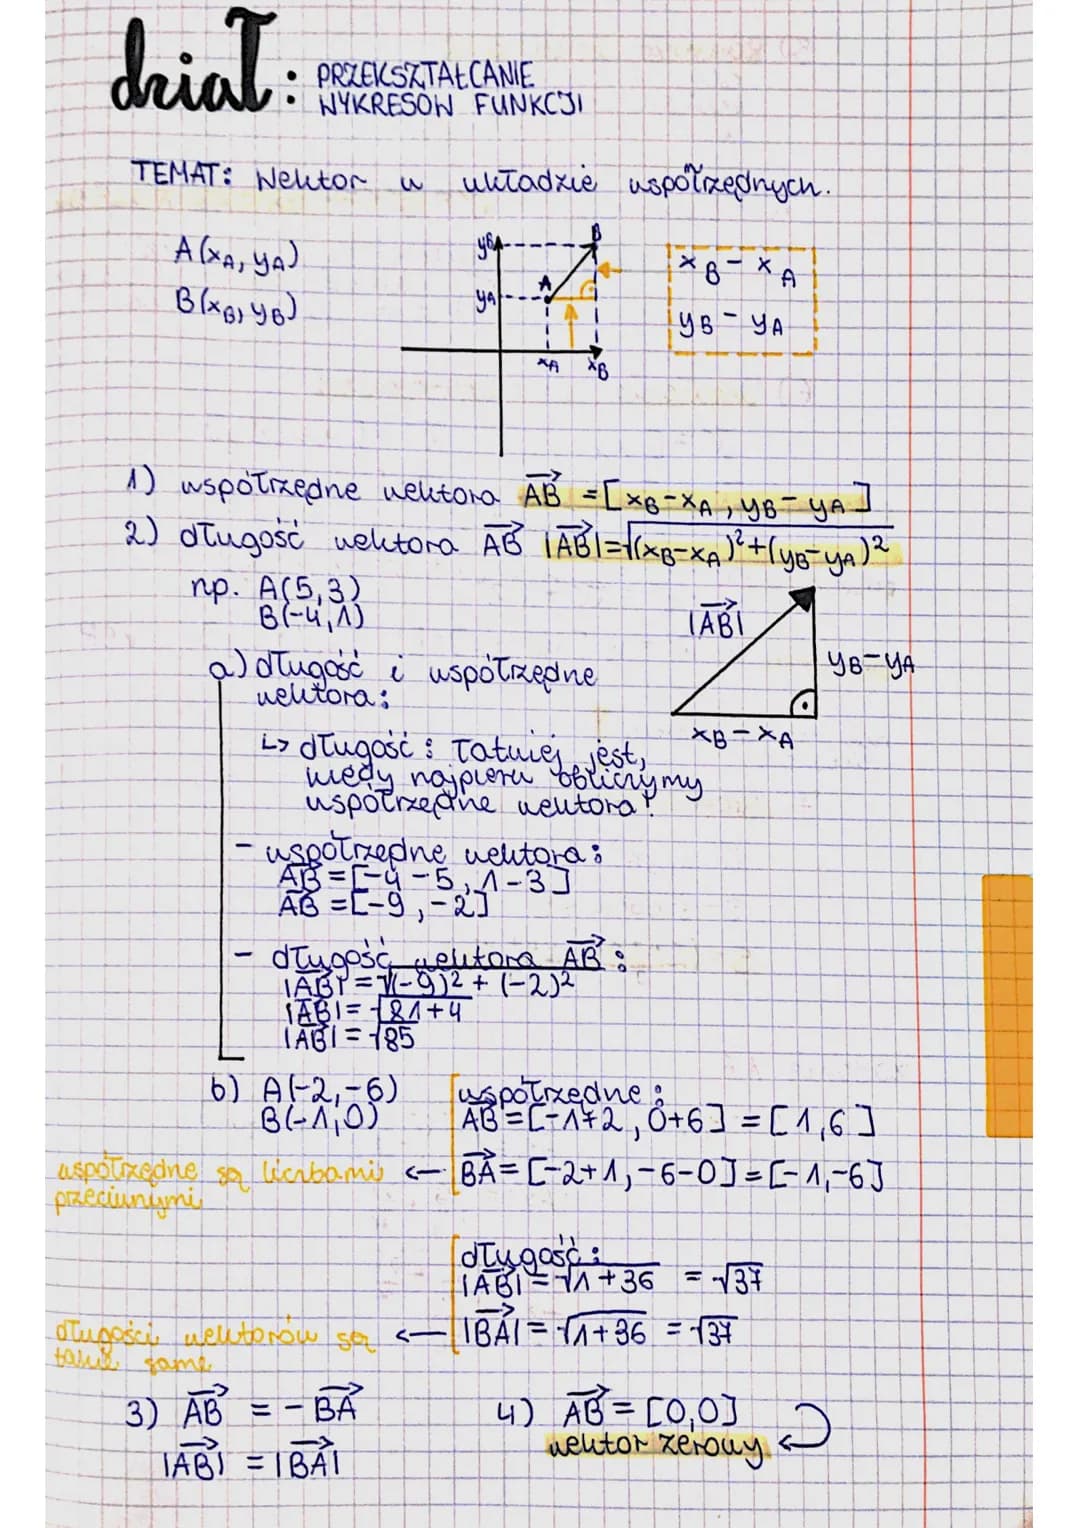 dział: PRZEKSZTAŁCANIE
WYKRESÓW FUNKCJI
TEMAT: Wektor w układzie współrzędnych.
A(xA, yA)
B(xB, yB)
yB
B
yA
A
xA
xB
xB - xA
yB - yA
1) współrzędne wektora AB⃗ = [xB-xA, yB-yA]
2) długość wektora AB⃗ |AB⃗|=√(xB-xA)²+(yB-yA)²
np. A(5,3)
B(-4,1)
|AB⃗|
yB-yA
xB-xA
a) długość i współrzędne
wektora:
↳ długość: łatwiej jest,
kiedy najpierw obliczymy
współrzędne wektora!
- współrzędne wektora:
AB⃗=[-4-5, 1-3]
AB⃗=[-9,-2]
- długość wektora AB⃗:
|AB⃗|=√(-9)²+(-2)²
|AB⃗|=√81+4
|AB⃗|=√85
b) A(-2,-6)
B(-1,0)
współrzędne:
AB⃗=[-1+2, 0+6] = [1,6]
BA⃗=[-2+1, -6-0]=[-1,-6]
współrzędne są liczbami ←
przeciwnymi
długość:
|AB⃗|=√1+36 = √37
|BA⃗|=√1+36 = √37
długości wektorów są ←
takie same
3) AB⃗ = -BA⃗
|AB⃗| = |BA⃗|
4) AB⃗ = [0,0]
wektor zerowy